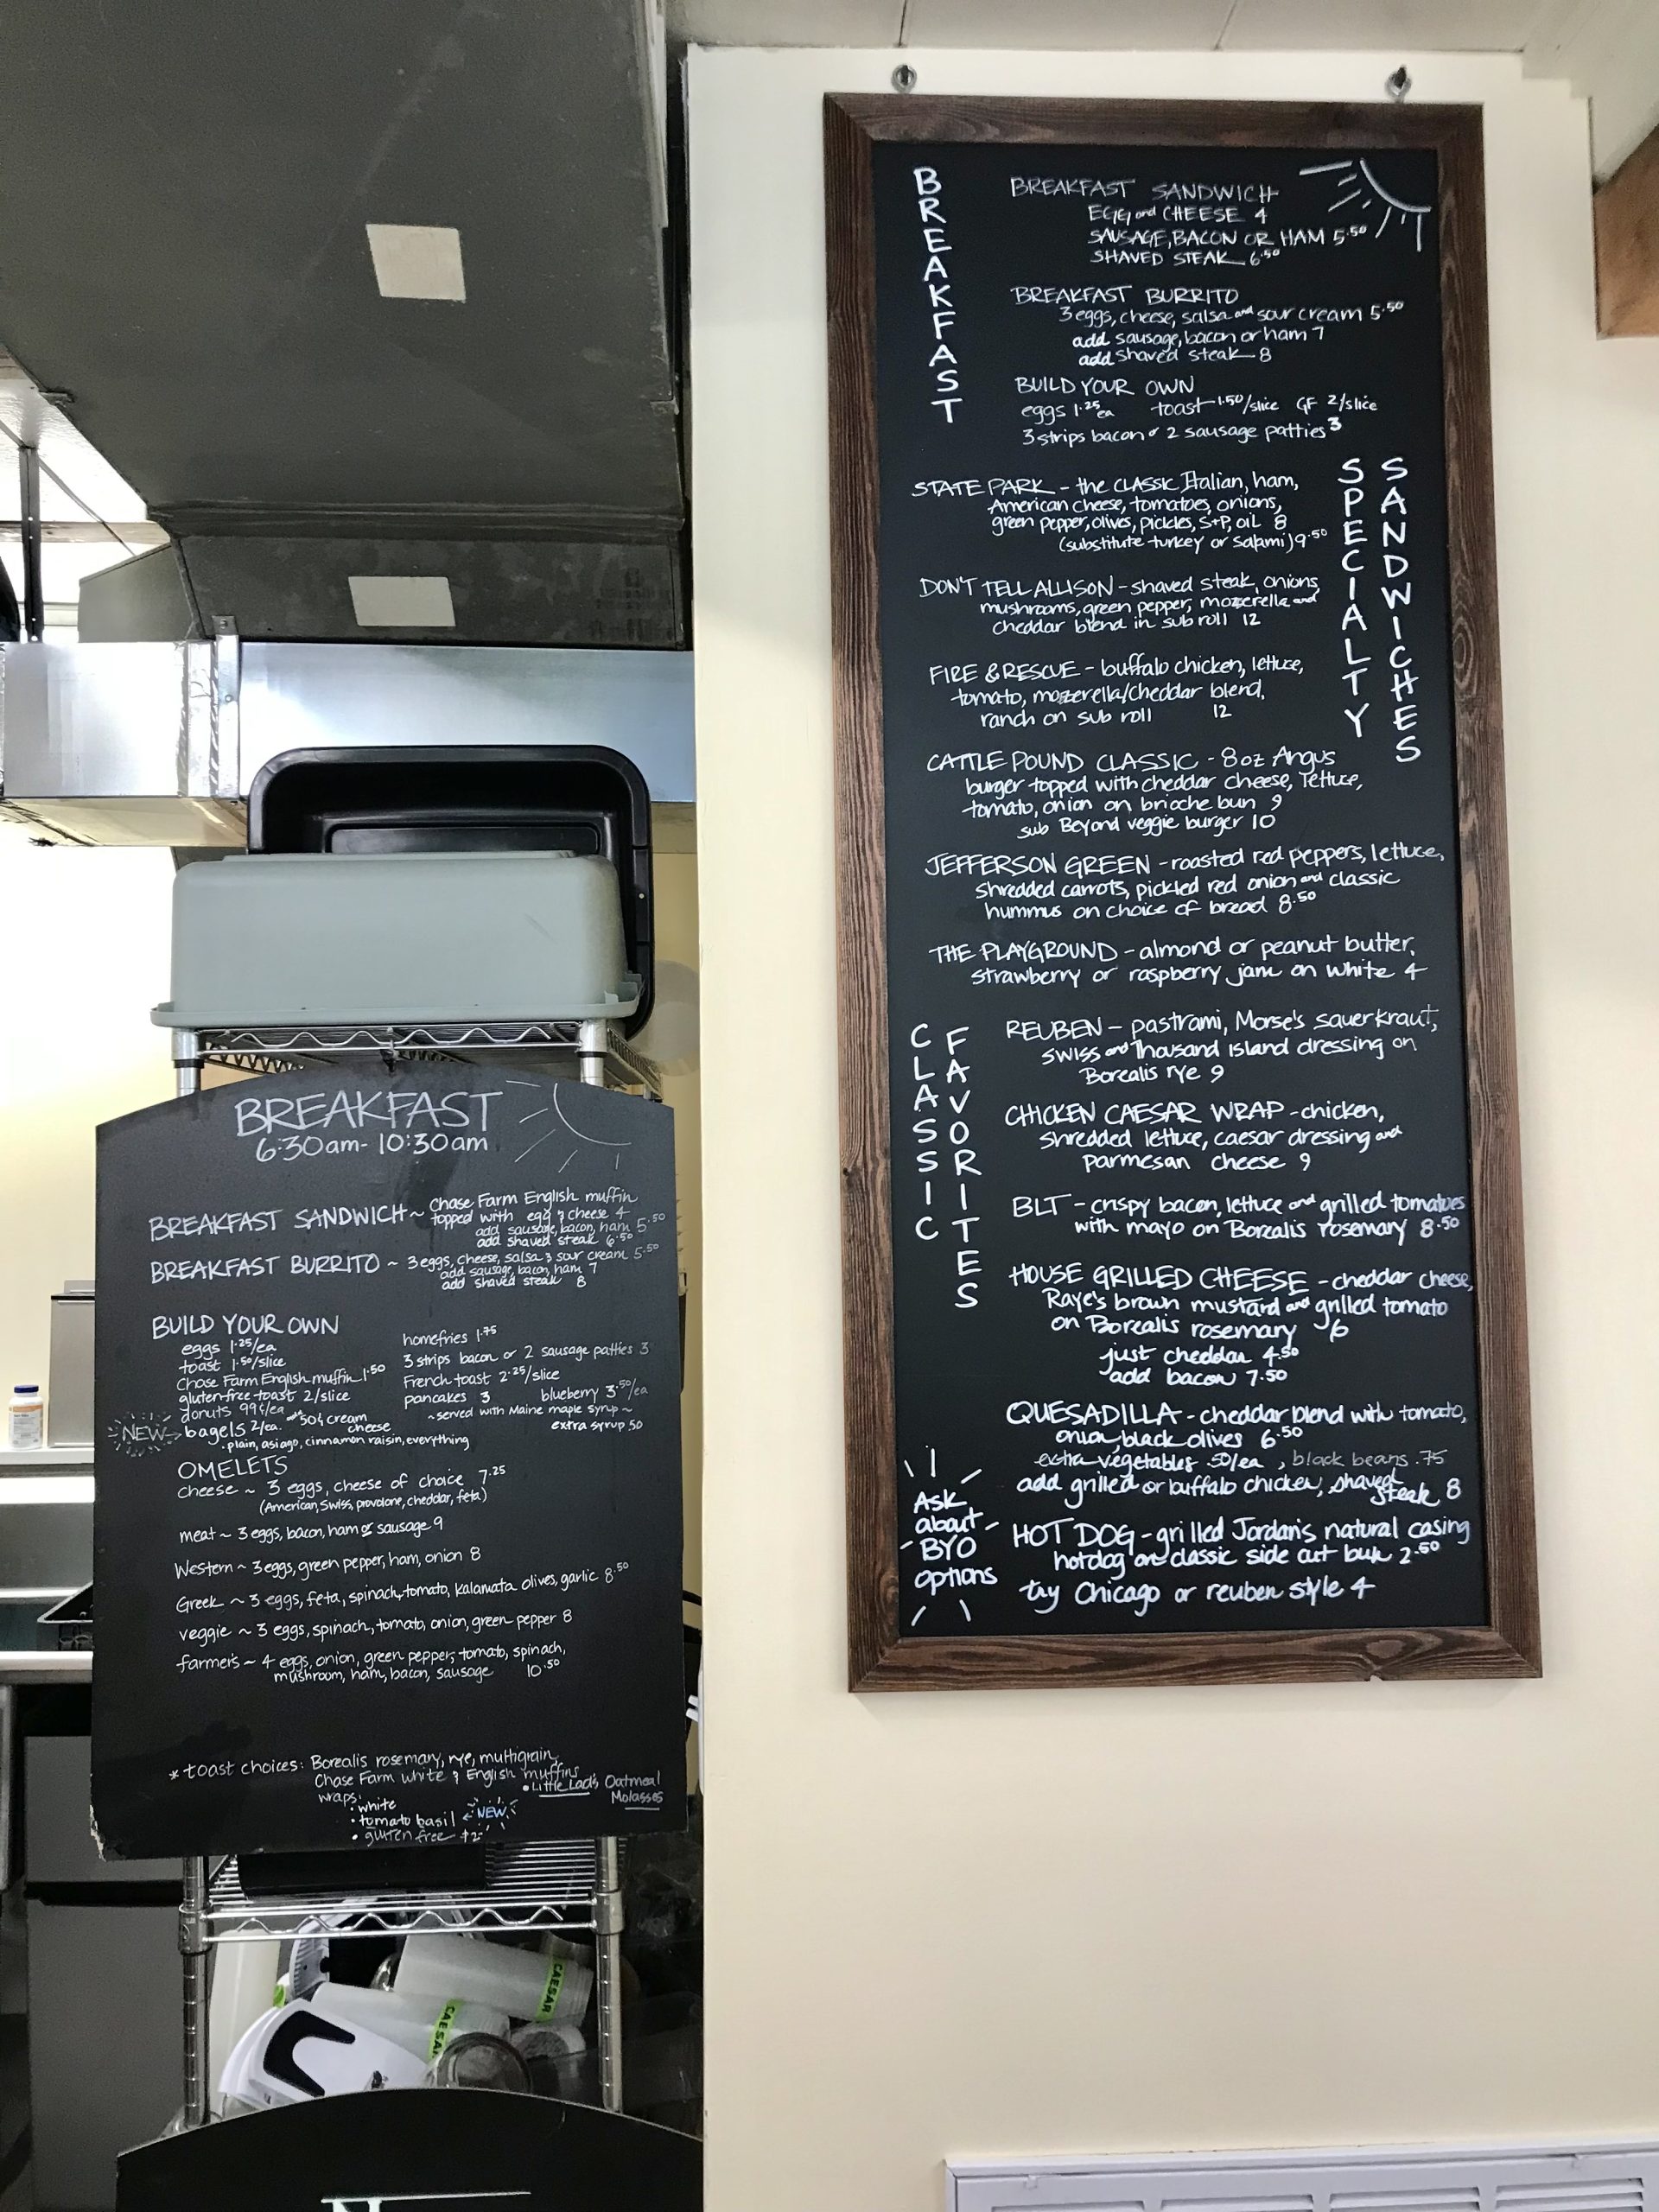 BREAKFAST
6:30am-10:30am
BREAKFAST SANDWICH~ Chase Farm English muffin
topped with egg & cheese 4
add sausage, bacon, ham 5.50
add shaved steak 6.50
BREAKFAST BURRITO ~ 3 eggs, cheese, salsa & sour cream 5.50
add sausage, bacon, ham 7
add shaved steak 8
BUILD YOUR OWN
eggs 1.25/ea
toast 1.50/slice
Chase Farm English muffin 1.50
gluten-free toast 2/slice
donuts 99¢/ea
NEW → bagels 2/ea. and 50¢ cream
cheese
· plain, asiago, cinnamon raisin, everything
homefries 1.75
3 strips bacon or 2 sausage patties 3
French toast 2.25/slice
pancakes 3 blueberry 3.50/ea
~served with Maine maple syrup~
extra syrup .50
OMELETS
cheese ~ 3 eggs, cheese of choice 7.25
(American, Swiss, provolone, cheddar, feta)
meat ~ 3 eggs, bacon, ham or sausage 9
Western ~ 3 eggs, green pepper, ham, onion 8
Greek ~ 3 eggs, feta, spinach, tomato, Kalamata olives, garlic 8.50
veggie ~ 3 eggs, spinach, tomato, onion, green pepper 8
farmers ~ 4 eggs, onion, green pepper, tomato, spinach,
mushroom, ham, bacon, sausage 10.50
* toast choices: Borealis rosemary, rye, multigrain,
Chase Farm white & English muffins
• Little Lad's Oatmeal
Molasses
wraps:
• white
• tomato basil ← NEW
• gluten free +2
CAESAR
CAESAR
BREAKFAST
BREAKFAST SANDWICH
EGG and CHEESE 4
SAUSAGE, BACON OR HAM 5.50
SHAVED STEAK 6.50
BREAKFAST BURRITO
3 eggs, cheese, salsa and sour cream 5.50
add sausage, bacon or ham 7
add shaved steak 8
BUILD YOUR OWN
eggs 1.25 ea toast 1.50/slice GF 2/slice
3 strips bacon or 2 sausage patties 3
SPECIALTY SANDWICHES
STATE PARK - the CLASSIC Italian, ham,
American cheese, tomatoes, onions,
green pepper, olives, pickles, S+P, oil 8
(substitute turkey or salami) 9.50
DON'T TELL ALLISON - shaved steak, onions,
mushrooms, green pepper, mozerella and
cheddar blend in sub roll 12
FIRE & RESCUE - buffalo chicken, lettuce,
tomato, mozerella/cheddar blend,
ranch on sub roll 12
CATTLE POUND CLASSIC - 8oz Angus
burger topped with cheddar cheese, lettuce,
tomato, onion on brioche bun 9
sub Beyond veggie burger 10
JEFFERSON GREEN - roasted red peppers, lettuce,
shredded carrots, pickled red onion and classic
hummus on choice of bread 8.50
THE PLAYGROUND - almond or peanut butter,
strawberry or raspberry jam on white 4
CLASSIC FAVORITES
REUBEN - pastrami, Morse's sauerkraut,
swiss and Thousand Island dressing on
Borealis rye 9
CHICKEN CAESAR WRAP - chicken,
shredded lettuce, caesar dressing and
parmesan cheese 9
BLT - crispy bacon, lettuce and grilled tomatoes
with mayo on Borealis rosemary 8.50
HOUSE GRILLED CHEESE - cheddar cheese,
Raye's brown mustard and grilled tomato
on Borealis rosemary 6
just cheddar 4.50
add bacon 7.50
QUESADILLA - cheddar blend with tomato,
onion, black olives 6.50
extra vegetables .50/ea, black beans .75
add grilled or buffalo chicken, shaved
steak 8
HOT DOG - grilled Jordan's natural casing
hotdog on classic side cut bun 2.50
try Chicago or reuben style 4
Ask
about
BYO
options